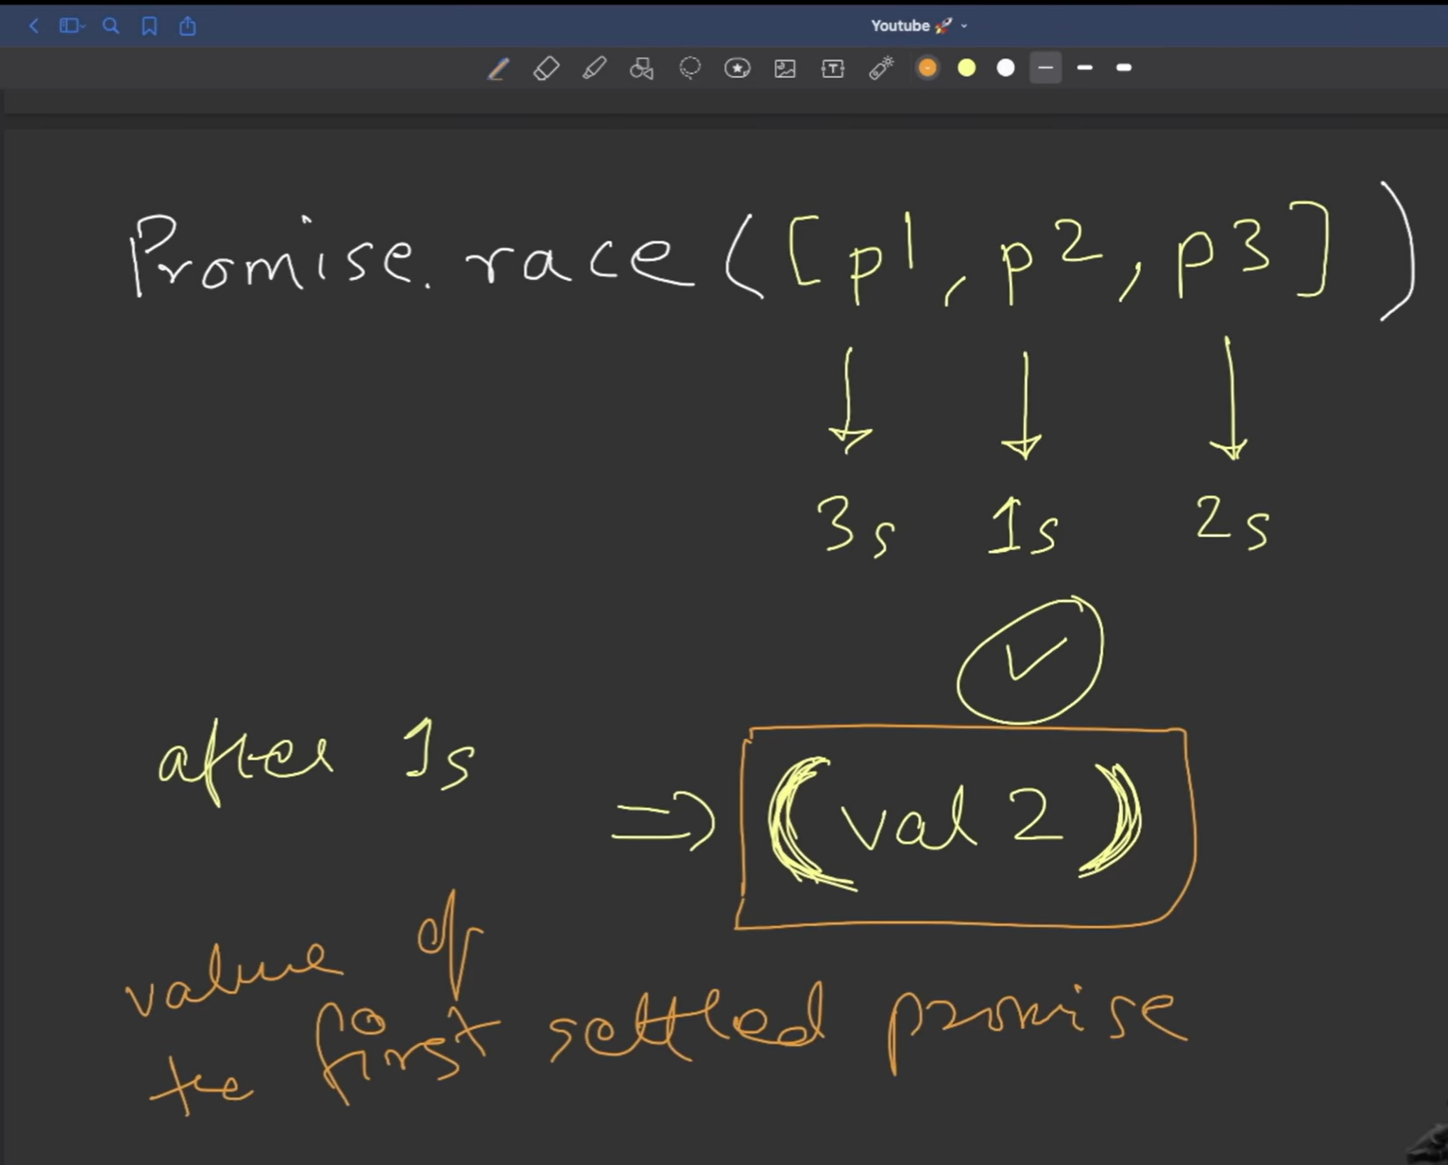 Youtube 🚀
Promise.race([p1, p2, p3])
3s 1s 2s
after 1s
=> (val 2)
value of
the first settled promise